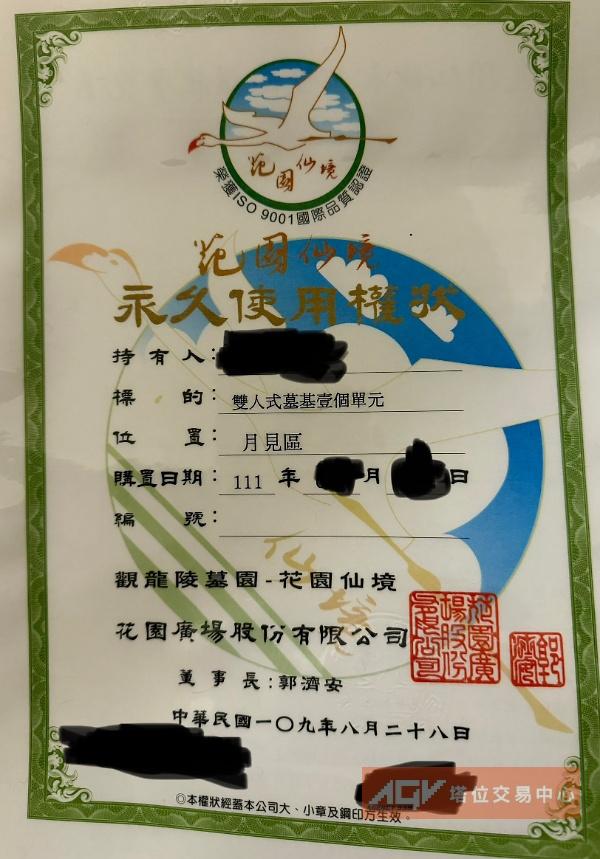 花園仙境
榮獲ISO 9001國際品質認證
花園仙境
永久使用權狀
持有人：
標的：雙人式墓基壹個單元
位置：月見區
購置日期：111年 月 日
編號：
仙境
觀龍陵墓園-花園仙境
花園廣場股份有限公司
董事長：郭濟安
中華民國一〇九年八月二十八日
◎本權狀經蓋本公司大、小章及鋼印方生效。
AGV 塔位交易中心